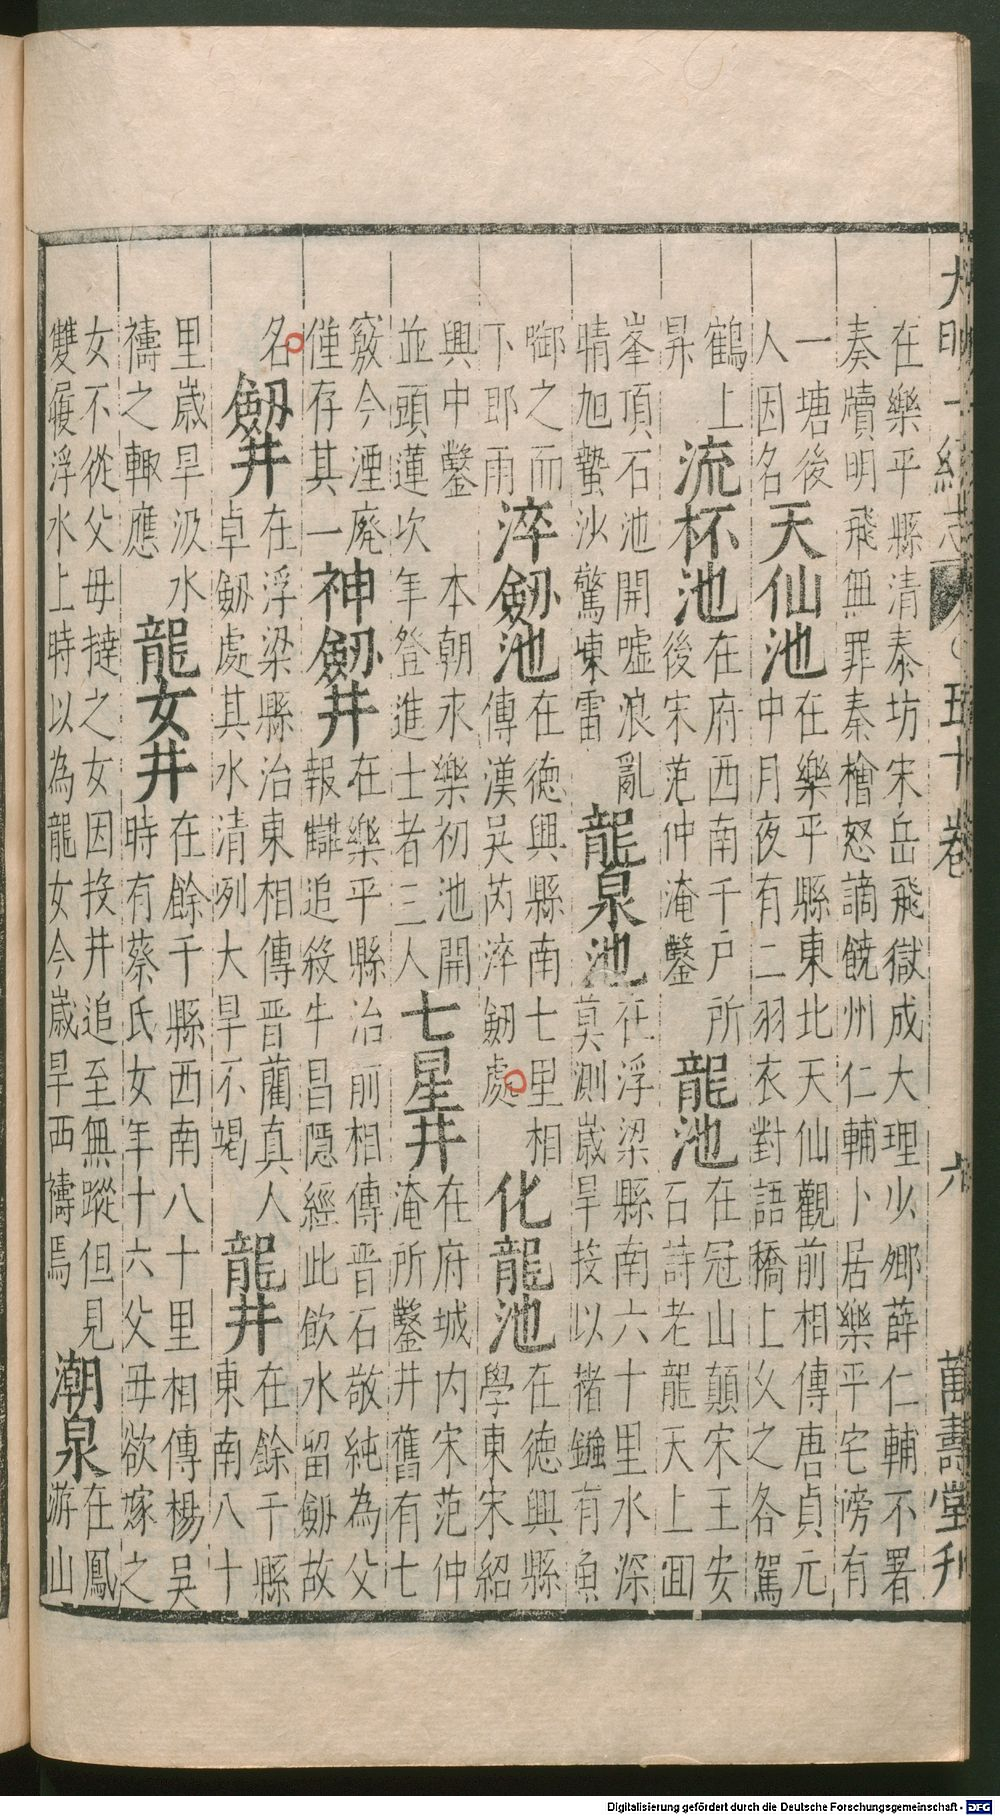 大明一統志 五十卷 六 萬壽堂刊
在樂平縣清泰坊宋岳飛獄成大理少卿薛仁輔不署
奏牘明飛無罪秦檜怒謫饒州仁輔卜居樂平宅滂有
一塘後
人因名
天仙池
在樂平縣東北天仙觀前相傳唐貞元
中月夜有二羽衣對語橋上乆之各駕
鶴上
昇
流杯池
在府西南千户所
後宋范仲淹鑿
龍池
在冠山顛宋王安
石詩老龍天上囬
峯頂石池開嘘浪亂
晴旭蟄沙驚凍雷
龍泉池
在浮梁縣南六十里水深
莫測嵗旱投以楮鏹有魚
啣之而
下郎雨
淬劒池
在德興縣南七里相
傳漢吳芮淬劒處
化龍池
在德興縣
學東宋紹
興中鑿 本朝永樂初池開
並頭蓮次年登進士者三人
七星井
在府城内宋范仲
淹所鑿井舊有七
竅今湮廢
僅存其一
神劒井
在樂平縣治前相傳晋石敬純為父
報讎追殺牛昌隱經此飲水留劒故
名
劒井
在浮梁縣治東相傳晋藺真人
卓劒處其水清冽大旱不竭
龍井
在餘干縣
東南八十
里嵗旱汲水
禱之輙應
龍女井
在餘干縣西南八十里相傳楊吳
時有蔡氏女年十六父母欲嫁之
女不從父母撻之女因投井追至無蹤但見
雙履浮水上時以為龍女今嵗旱西禱焉
潮泉
在鳳
游山
Digitalisierung gefördert durch die Deutsche Forschungsgemeinschaft - DFG